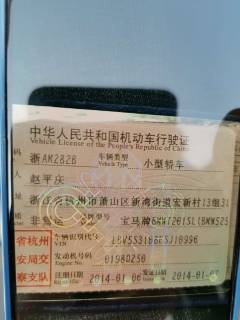 中华人民共和国机动车行驶证
Vehicle License of the People's Republic of China
码 浙AK2826 车辆类型 Vehicle Type 小型轿车
人 赵平庆
浙江省杭州市萧山区新湾街道宏新村13组31
非营 宝马牌BMW7201SL(BMW525
省杭州 车辆识别代号 VIN
安局交 发动机号码 Engine No. 01980260
察支队 注册日期 2014-01-06 发证日期 2014-01-07